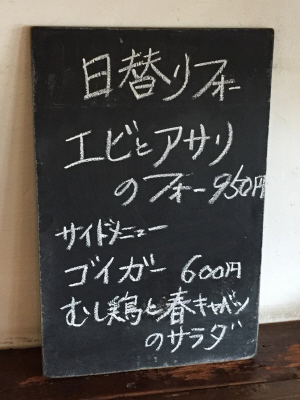 日替りフォー
エビとアサリ
のフォー 950円
サイドメニュー
ゴイガー 600円
むし鶏と春キャベツ
のサラダ